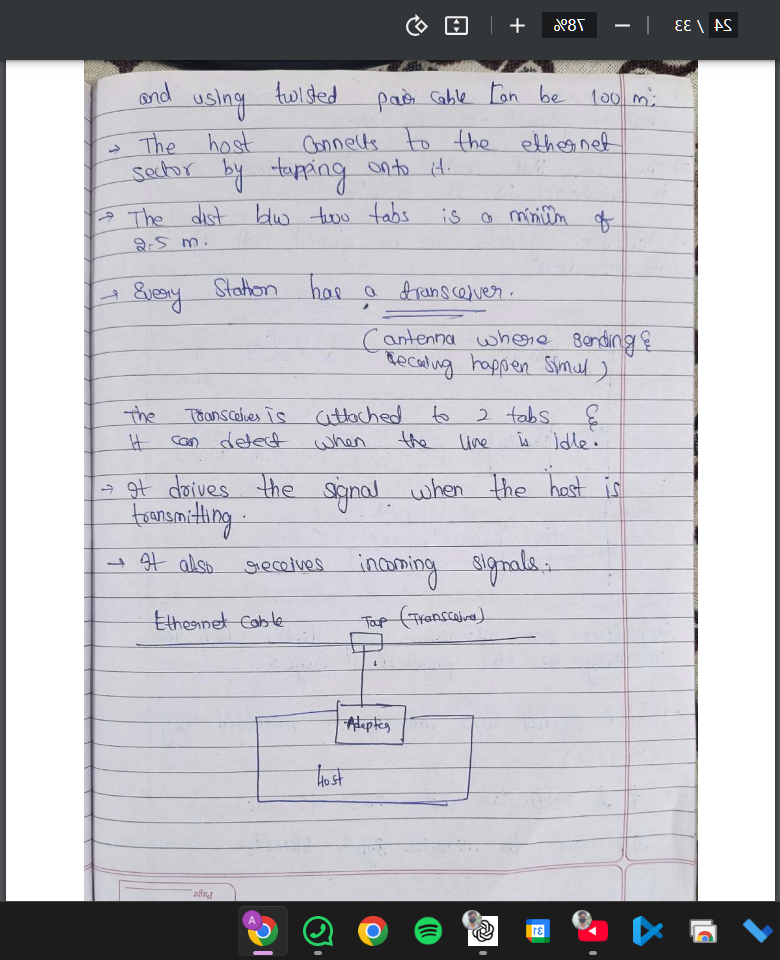 24 / 33 78%
and using twisted pair cable can be 100 m.
→ The host connects to the ethernet
sector by tapping onto it.
→ The dist b/w two tabs is a minium of
2.5 m.
→ Every Station has a transceiver.
(antenna where sending &
receving happen simul)
The Transceiver is attached to 2 tabs &
It can detect when the line is idle.
→ It drives the signal when the host is
transmitting.
→ It also receives incoming signals.
Ethernet Cable Tap (Transceiver)
Adapter
Host
Page
A
31